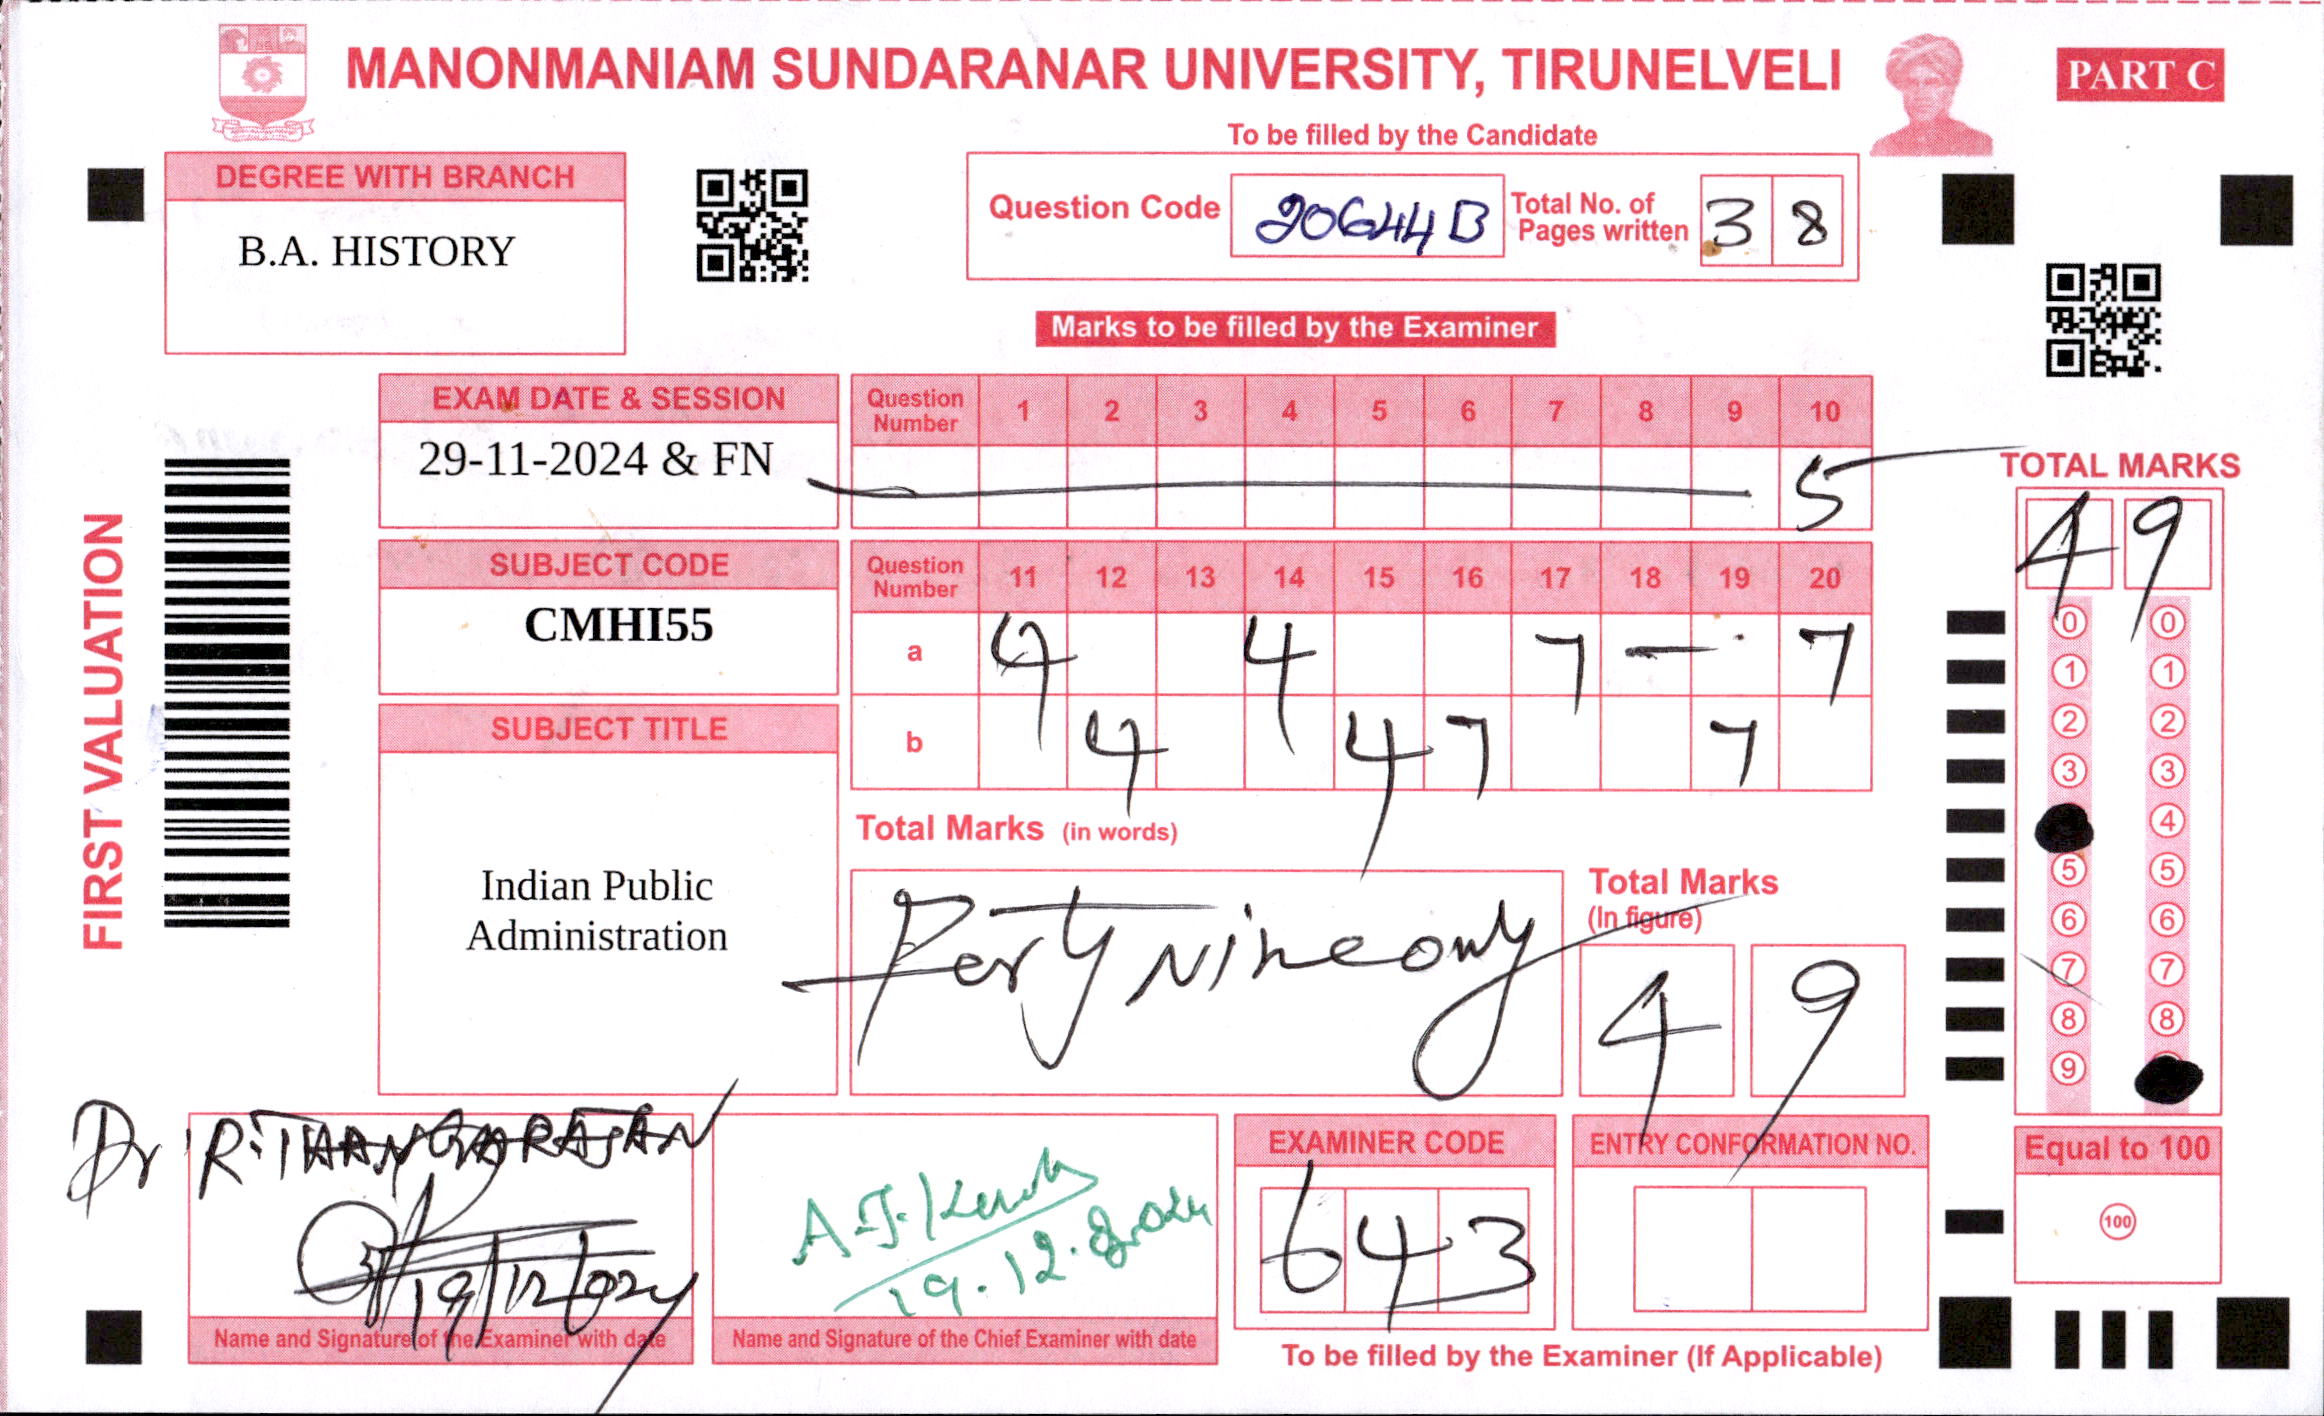 MANONMANIAM SUNDARANAR UNIVERSITY, TIRUNELVELI
PART C
To be filled by the Candidate
DEGREE WITH BRANCH
B.A. HISTORY
Question Code 20644B Total No. of Pages written 3 8
Marks to be filled by the Examiner
FIRST VALUATION
EXAM DATE & SESSION
29-11-2024 & FN
Question Number 1 2 3 4 5 6 7 8 9 10
5
SUBJECT CODE
CMHI55
Question Number 11 12 13 14 15 16 17 18 19 20
a 4 4 7 — 7
b 4 4 7 7
SUBJECT TITLE
Indian Public
Administration
Total Marks (in words)
Forty Nine only
Total Marks
(In figure)
4 9
TOTAL MARKS
4 9
0 0
1 1
2 2
3 3
4
5 5
6 6
7 7
8 8
9
Equal to 100
100
Dr R. THANGARAJAN
19/12/024
Name and Signature of the Examiner with date
A.J.
19.12.2024
Name and Signature of the Chief Examiner with date
EXAMINER CODE
6 4 3
ENTRY CONFORMATION NO.
To be filled by the Examiner (If Applicable)